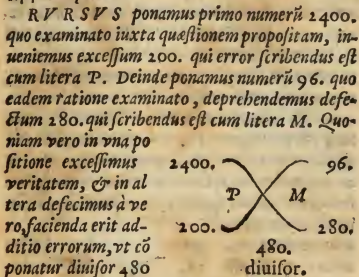 RVRSVS ponamus primo numerũ 2400.
quo examinato iuxta quæstionem propositam, in-
ueniemus excessum 200. qui error scribendus est
cum litera P. Deinde ponamus numerũ 96. quo
eadem ratione examinato, deprehendemus defe-
ctum 280. qui scribendus est cum litera M. Quo-
niam vero in vna po
sitione excessimus
veritatem, & in al
tera defecimus à ve
ro, facienda erit ad-
ditio errorum, vt cõ
ponatur diuisor 480
2400. 96.
P M
200. 280.
480.
diuisor.